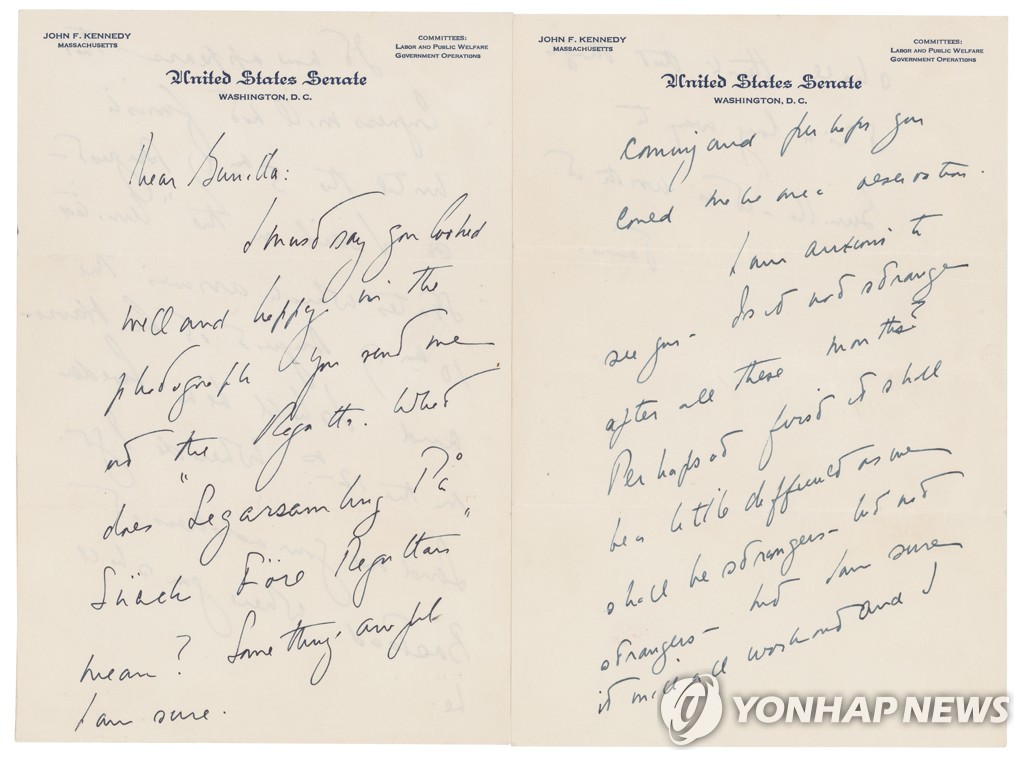 JOHN F. KENNEDY
MASSACHUSETTS
COMMITTEES:
LABOR AND PUBLIC WELFARE
GOVERNMENT OPERATIONS
United States Senate
WASHINGTON, D. C.
Dear Gunilla:
I must say you looked
well and happy in the
photograph you send me
at the Regatta. What
does "Segarsamling På
Snäck Före Regattan"
mean? Something awful
I am sure.
JOHN F. KENNEDY
MASSACHUSETTS
COMMITTEES:
LABOR AND PUBLIC WELFARE
GOVERNMENT OPERATIONS
United States Senate
WASHINGTON, D. C.
coming and perhaps you
could make me a reservation.
I am anxious to
see you - Is it not strange
after all these months?
Perhaps at first it shall
be a little difficult as we
shall be strangers - but not
strangers - but I am sure
it will all work out and I
YONHAP NEWS